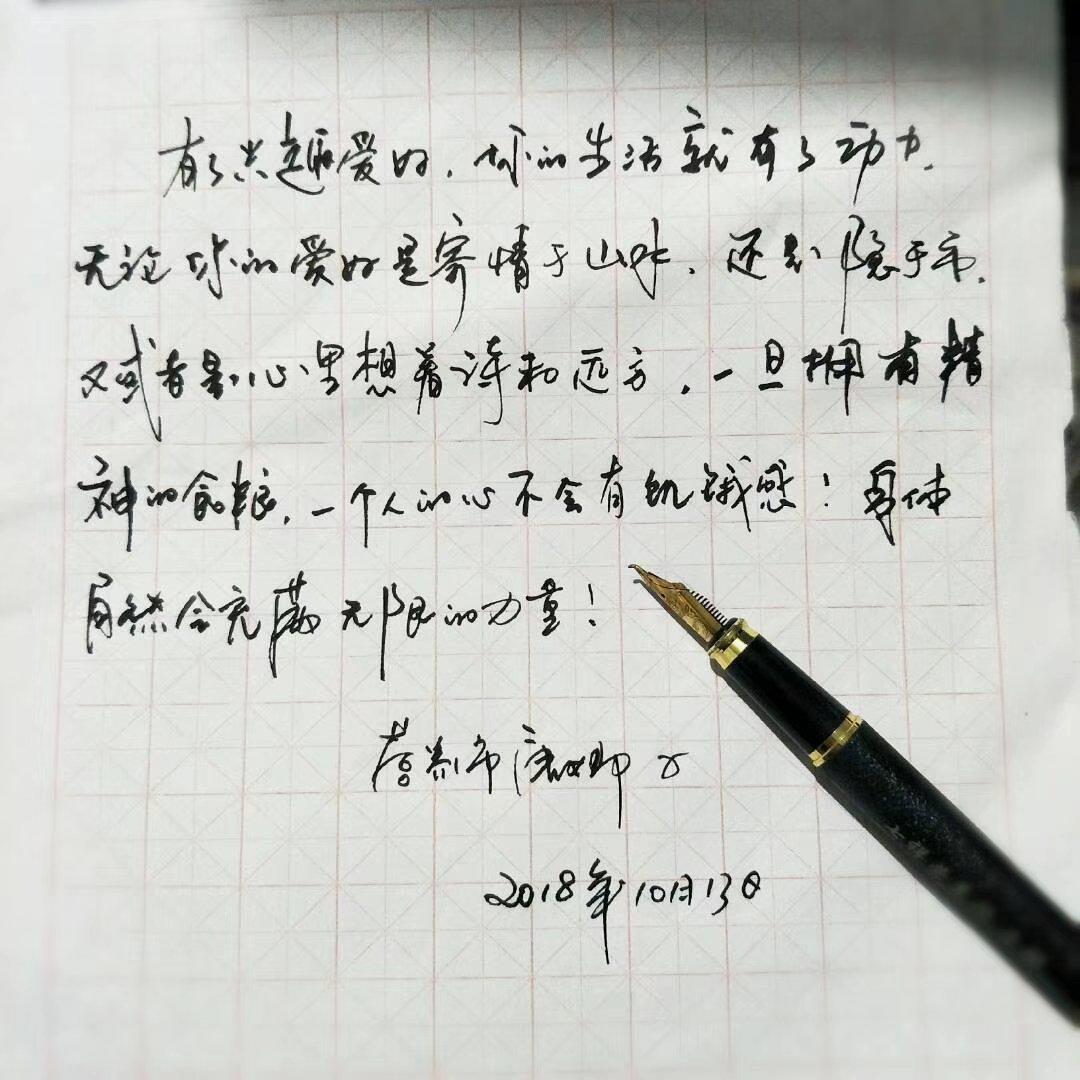 有了兴趣爱好，你的生活就有了动力，
无论你的爱好是寄情于山水，还是隐于市，
又或者是心里想着诗和远方，一旦拥有精
神的食粮，一个人的心不会有饥饿感！身体
自然会充满无限的力量！
2018年10月13日